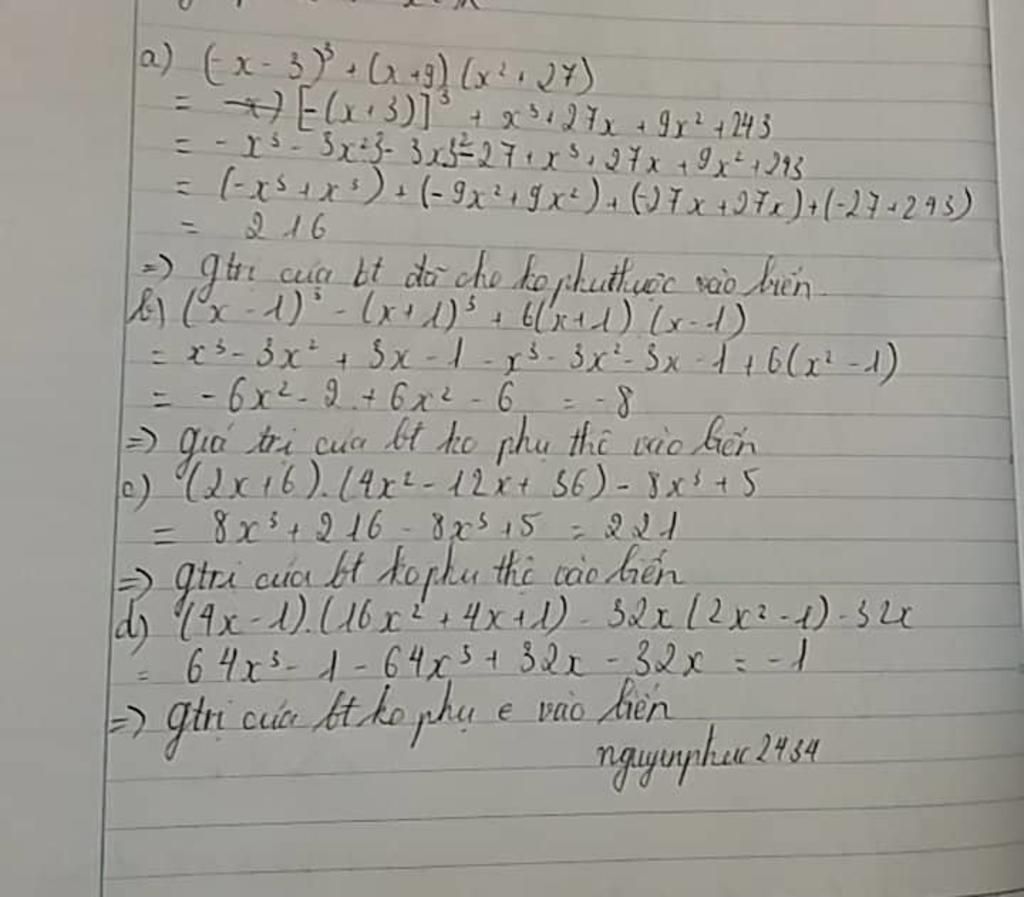 a) (-x - 3)³ + (x+9)(x² + 27)
= [-(x+3)]³ + x³ + 27x + 9x² + 243
= - x³ - 3x²3 - 3x3² - 27 + x³ + 27x + 9x² + 243
= (-x³ + x³) + (-9x² + 9x²) + (-27x + 27x) + (-27 + 243)
= 216
=> gtri của bt đã cho ko phuthuộc vào biến
b) (x - 1)³ - (x+1)³ + 6(x+1)(x-1)
= x³ - 3x² + 3x - 1 - x³ - 3x² - 3x - 1 + 6(x² - 1)
= - 6x² - 2 + 6x² - 6 = -8
=> giá trị của bt ko phụ thc vào biến
c) (2x+6).(4x² - 12x + 36) - 8x³ + 5
= 8x³ + 216 - 8x³ + 5 = 221
=> gtri của bt ko phụ thc vào biến
d) (4x-1).(16x² + 4x + 1) - 32x(2x² - 1) - 32x
= 64x³ - 1 - 64x³ + 32x - 32x = -1
=> gtrị của bt ko phụ e vào biến
nguynphuc2434